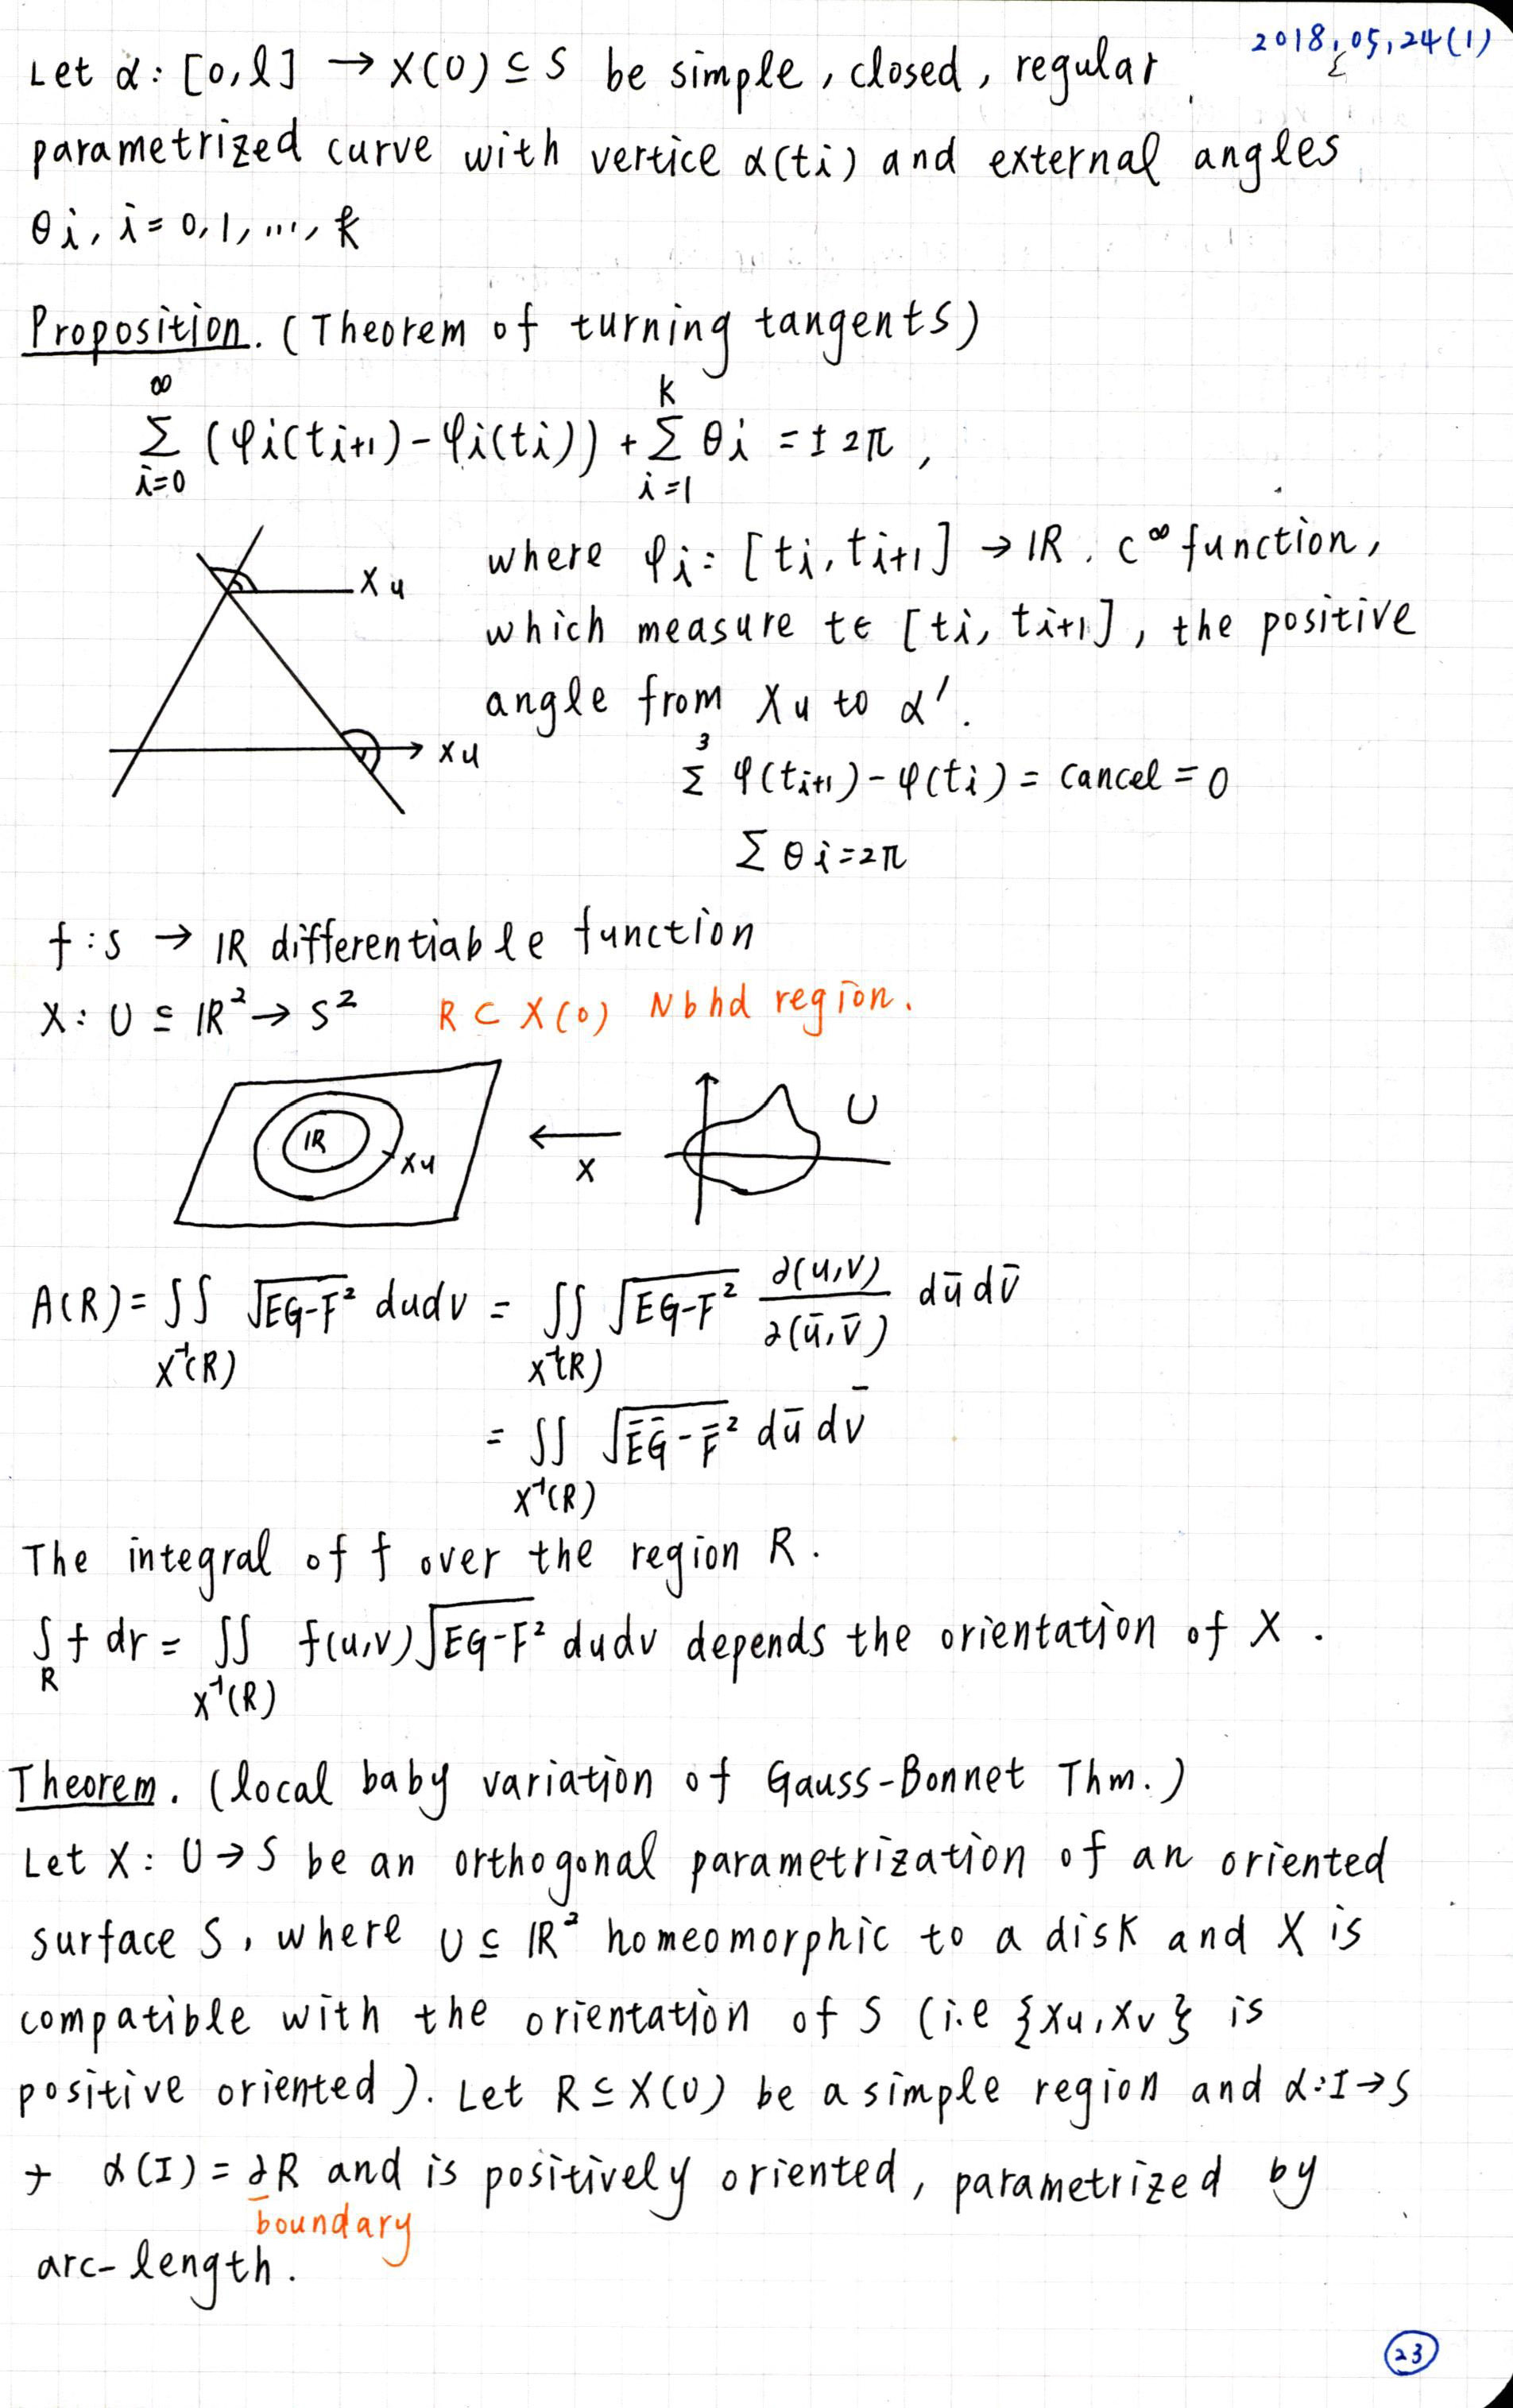 2018.05.24(1)
Let α: [0,l] → X(U) ⊆ S be simple, closed, regular
parametrized curve with vertice α(ti) and external angles
θi, i = 0,1,...,k
Proposition. (Theorem of turning tangents)
∑_{i=0}^{∞} (φi(ti+1) - φi(ti)) + ∑_{i=1}^{k} θi = ±2π,
where φi: [ti, ti+1] → IR. C^∞ function,
which measure t∈ [ti, ti+1], the positive
angle from Xu to α'.
Xu
Xu
∑^{3} φ(ti+1) - φ(ti) = cancel = 0
∑ θi = 2π
f: S → IR differentiable function
X: U ⊆ IR² → S² R ⊂ X(0) Nbhd region.
IR Xu ← X U
A(R) = ∬_{X⁻¹(R)} √(EG-F²) dudv = ∬_{X⁻¹(R)} √(EG-F²) ∂(u,v)/∂(ū,v̄) dū dv̄
= ∬_{X⁻¹(R)} √(ĒḠ-F̄²) dū dv̄
The integral of f over the region R.
∫_R f dr = ∬_{X⁻¹(R)} f(u,v) √(EG-F²) dudv depends the orientation of X.
Theorem. (local baby variation of Gauss-Bonnet Thm.)
Let X: U → S be an orthogonal parametrization of an oriented
surface S, where U ⊆ IR² homeomorphic to a disk and X is
compatible with the orientation of S (i.e {Xu, Xv} is
positive oriented). Let R ⊆ X(U) be a simple region and α: I → S
+ α(I) = ∂R and is positively oriented, parametrized by
boundary
arc-length.
23